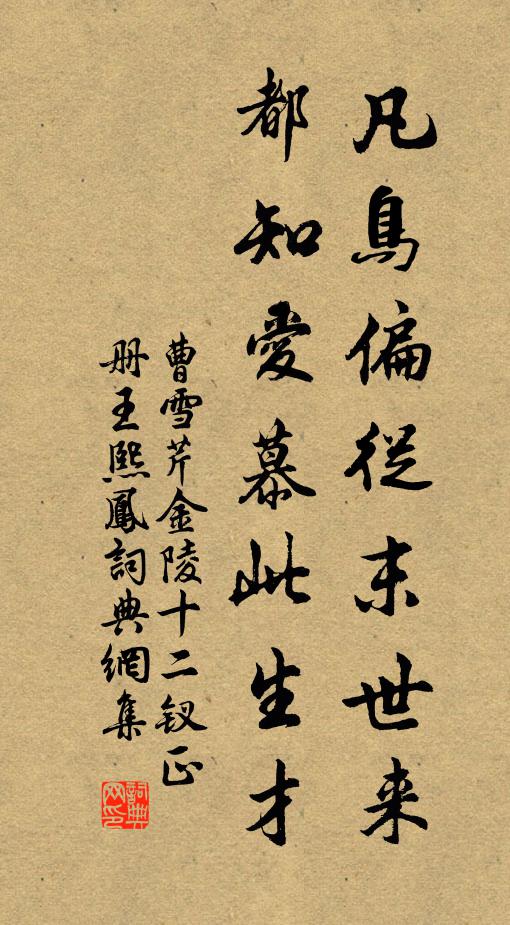 凡鳥偏從末世来
都知愛慕此生才
曹雪芹金陵十二釵正
册王熙鳳詞典網集
詞典
网印